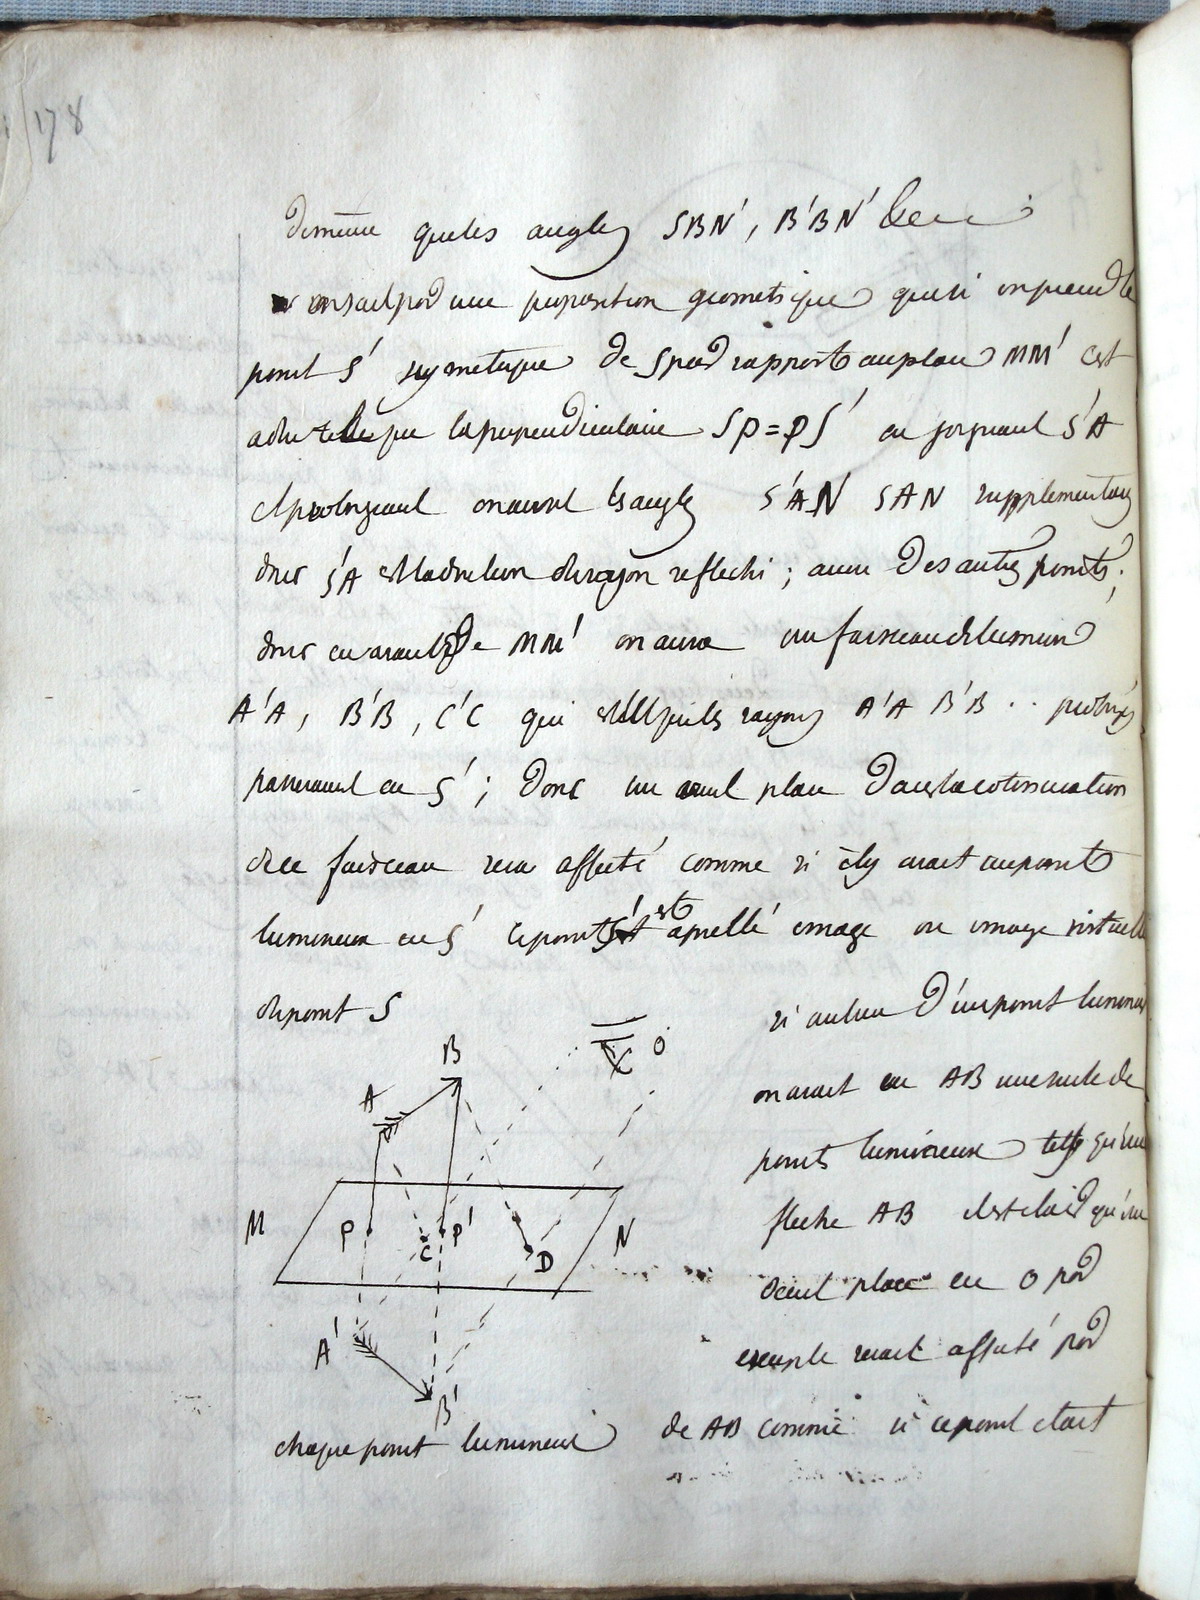 178
de même que les angles SBN', B'BN' &c
or on sait par une proposition geometrique que si on prend le
point S' symetrique de S par rapport au plan MM' c'est
à dire telle que la perpendiculaire SP=PS' en joignant S'A
et prolongeant on aura les angles S'AN SAN supplementaires
donc S'A est la direction du rayon reflechi ; aussi des autres points ;
donc en avant de MM' on aura un faisceau de lumiere
A'A, B'B, C'C qui est tel que les rayons A'A B'B . . prolongés
passeraient en S' ; donc un œuil placé dans la continuation
de ce faisceau sera affecté comme si il y avait un point
lumineux en S' ce point S' est apellé image ou image virtuelle
du point S
si au lieu d'un point lumineux
on avait en AB une suite de
points lumineux tels qu'une
fleche AB il est clair qu'un
œuil placé en O par
exemple serait affecté par
chaque point lumineux de AB comme si ce point etait
B
O
A
M
P
C
P'
D
N
A'
B'